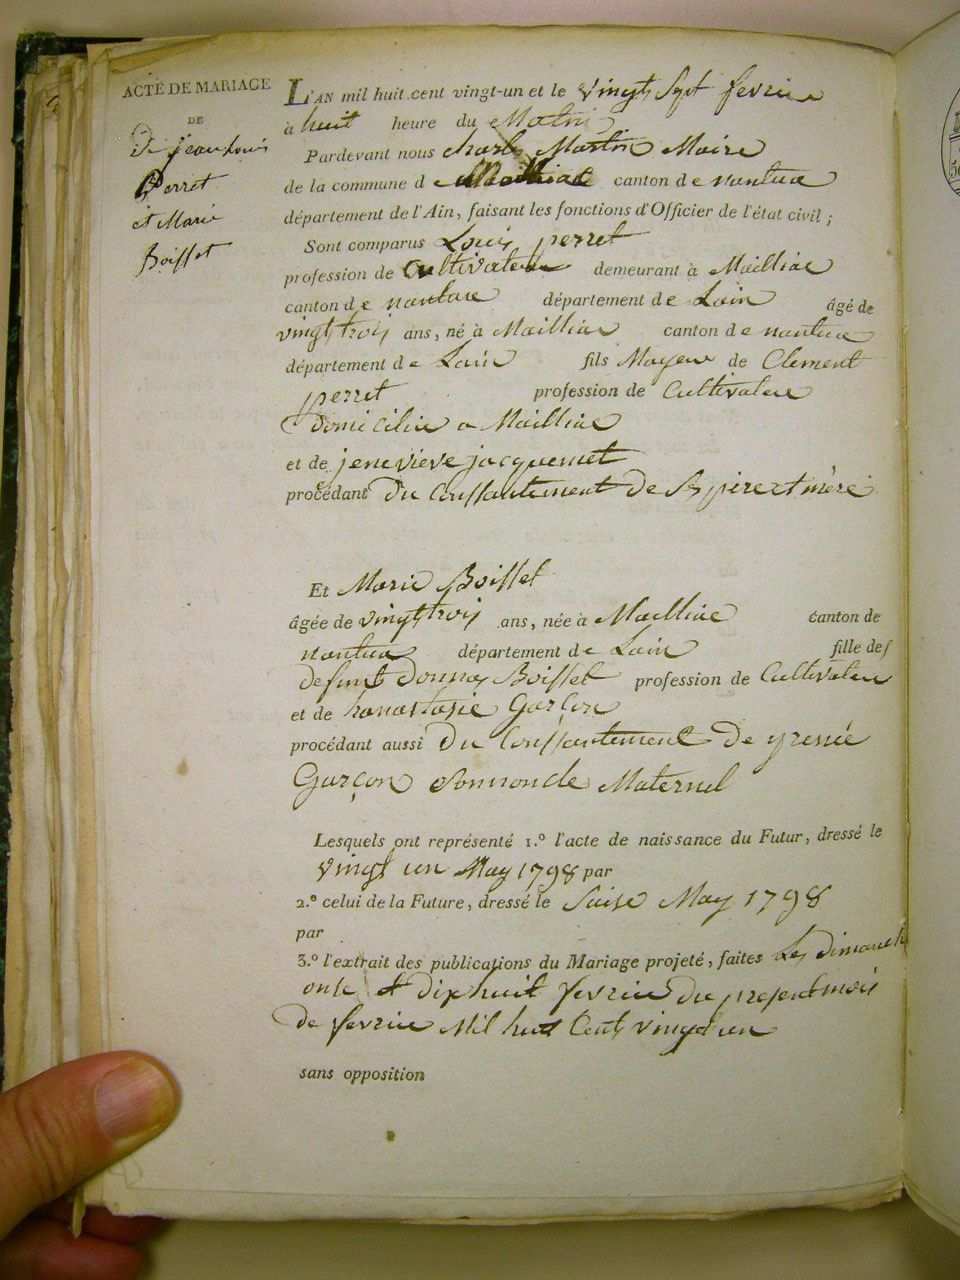 ACTE DE MARIAGE
DE
De jean Louis
Perret
et Marie
Boisset
L'AN mil huit cent vingt-un et le vingt Sept fevrier
à huit heure du Matin
Pardevant nous charle Martin Maire
de la commune de Mailliac canton de nantua
département de l'Ain, faisant les fonctions d'Officier de l'état civil ;
Sont comparus Louis perret
profession de Cultivateur demeurant à Mailliac
canton de nantua département de Lain âgé de
vingt trois ans, né à Mailliac canton de nantua
département de Lain fils Mayeur de Clement
perret profession de Cultivateur
domicilier a Mailliac
et de jenevieve jacquemet
procédant du Conssantement de Ses pere et mère
Et Marie Boisset
âgée de vingt trois ans, née à Mailliac canton de
nantua département de Lain fille de
defunt Boisset profession de Cultivateur
et de hanastasie Garçon
procédant aussi du Conssantement de yrenée
Garçon Son oncle Maternel
Lesquels ont représenté 1.º l'acte de naissance du Futur, dressé le
vingt un May 1798 par
2.º celui de la Future, dressé le Saise May 1798
par
3.º l'extrait des publications du Mariage projeté, faites Les dimanche
onse et dix huit fevrier du present mois
de fevrier Mil huit Cent vingt un
sans opposition